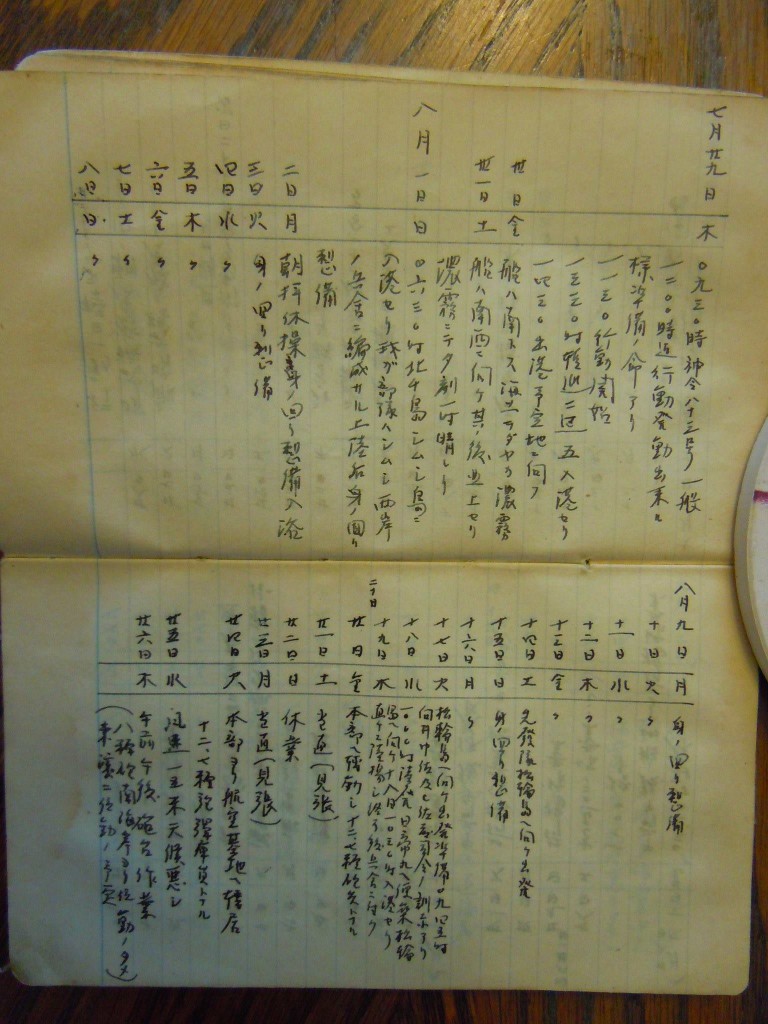 七月廿九日 木 〇九三〇時 命令八十三号 一般
一二〇〇時迄行動発動出来ル
様準備ノ命アリ
一一三〇行動開始
一三三〇 入港セリ
一四三〇出港予定地ニ向フ
卅日 金 船ハ南下ス海上オダヤカ濃霧
卅一日 土 船ハ南西ニ向ケ其ノ後北上セリ
濃霧ニテ夕刻一时晴レリ
八月 一日 日 〇六三〇时北千島シムシュ島ニ
入港セリ我ガ部隊ハシムシュ西岸
ノ兵舎ニ編成サル上陸后身ノ回リ
整備
二日 月 朝拝体操身ノ回リ整備入浴
三日 火 身ノ回リ整備
四日 水 〃
五日 木 〃
六日 金 〃
七日 土 〃
八日 日 〃
八月九日 月 身ノ回リ整備
十日 火 〃
十一日 水 〃
十二日 木 〃
十三日 金 〃
十四日 土 先発隊松輪島ヘ向ケ出発
十五日 日 身ノ回リ整備
十六日 月 〃
十七日 火 松輪島ヘ向ケ出発準備〇九四五时
向井中佐及ビ 司令ノ訓示アリ
十八日 水 一〇〇〇时 松輪
島ヘ向ケ十八日一〇三〇时入港セリ
十九日 木 直ケニ陸揚シ終リ后兵舎ニツク
二十日
廿日 金 本部ヘ 十二.七糎砲員トナル
廿一日 土 当直(見張)
廿二日 日 休業
廿三日 月 当直(見張)
廿四日 火 本部ヨリ航空基地ヘ転居
十二.七糎砲弾庫員トナル
廿五日 水 風速一五米天候悪シ
廿六日 木 午前午後砲台作業
(八糎砲南海岸ヨリ移動ノタメ
東 ニ移動ノ予定)